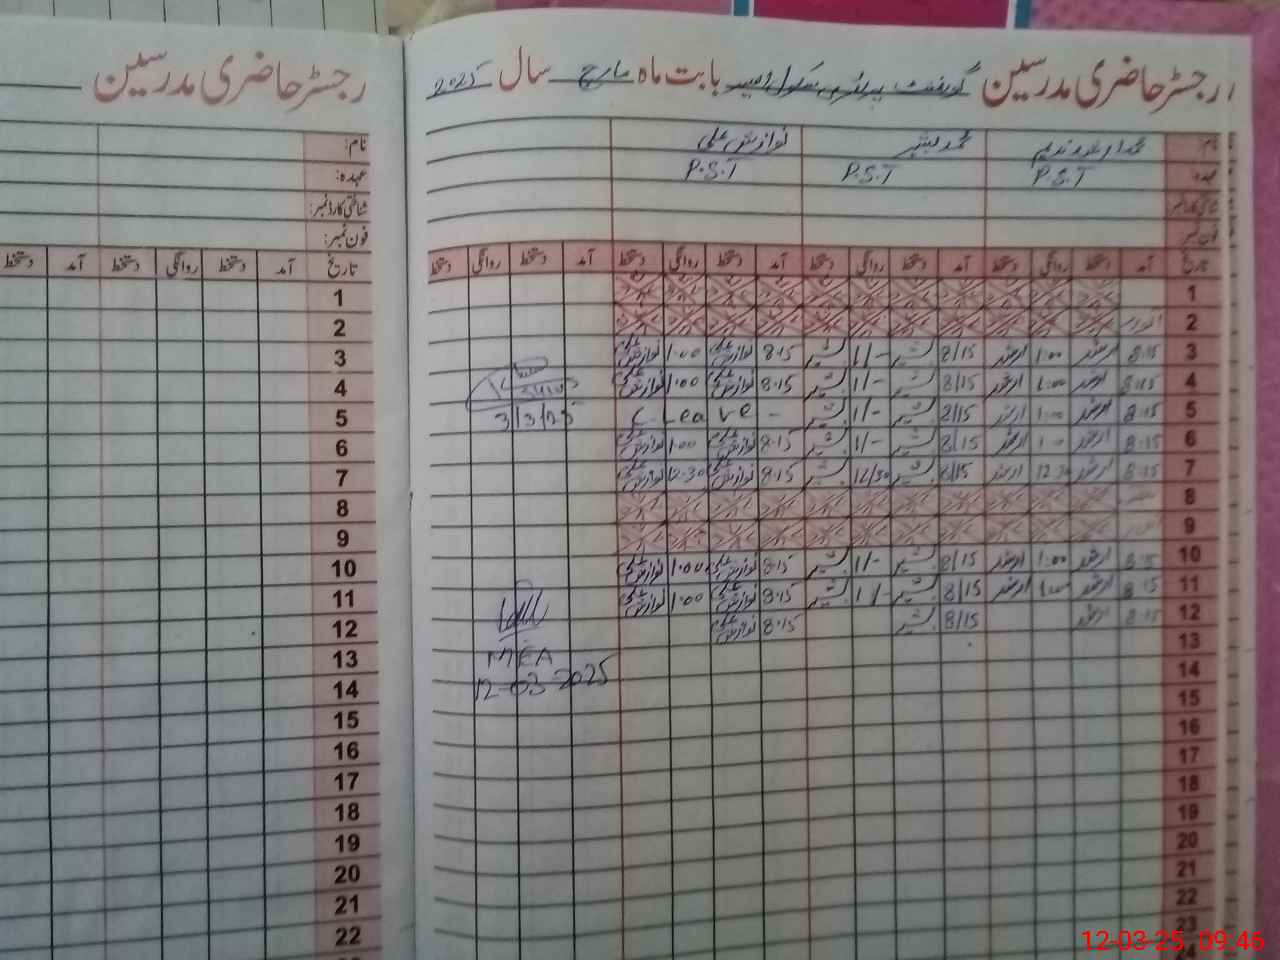 رجسٹر حاضری مدرسین گورنمنٹ پرائمری سکول بابت ماہ مارچ سال 2025
نام: محمد ارشد ندیم محمد بشیر نوازش علی
عہدہ: P.S.T P.S.T P.S.T
شناختی کارڈ نمبر:
فون نمبر:
تاریخ آمد دستخط روانگی دستخط آمد دستخط روانگی دستخط آمد دستخط روانگی دستخط آمد دستخط روانگی دستخط
1
2 اتوار
3 8:15 ارشد 1:00 ارشد 8/15 بشیر 1/- بشیر 8:15 نوازش علی 1:00 نوازش علی
4 8:15 ارشد 1:00 ارشد 8/15 بشیر 1/- بشیر 8:15 نوازش علی 1:00 نوازش علی
5 8:15 ارشد 1:00 ارشد 8/15 بشیر 1/- بشیر - C Leave 3/3/25
6 8:15 ارشد 1:0 ارشد 8/15 بشیر 1/- بشیر 8:15 نوازش علی 1:00 نوازش علی
7 8:15 ارشد 12:30 ارشد 8/15 بشیر 12/30 بشیر 8:15 نوازش علی 12:30 نوازش علی
8
9
10 8:15 ارشد 1:00 ارشد 8/15 بشیر 1/- بشیر 8:15 نوازش علی 1:00 نوازش علی
11 8:15 ارشد 1:00 ارشد 8/15 بشیر 1/- بشیر 8:15 نوازش علی 1:00 نوازش علی
12 8:15 ارشد 8/15 بشیر 8:15 نوازش علی
13 MEA
14 12-03-2025
15
16
17
18
19
20
21
22
23
24
رجسٹر حاضری مدرسین
نام:
عہدہ:
شناختی کارڈ نمبر:
فون نمبر:
تاریخ آمد دستخط روانگی دستخط آمد دستخط
1
2
3
4
5
6
7
8
9
10
11
12
13
14
15
16
17
18
19
20
21
22
12-03-25 09:46